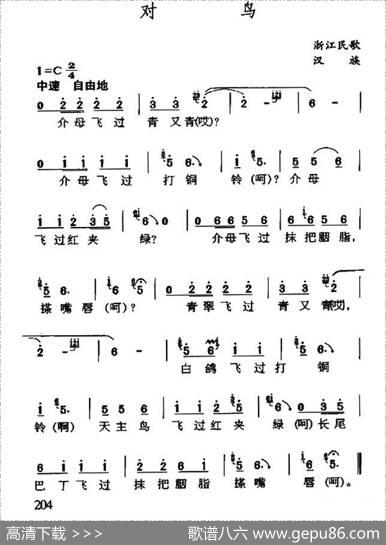 对 鸟
浙江民歌
汉 族
1=C 2/4
中速 自由地
0 2 2 2 2 | 3 3 2 | 2 - | 6 - |
介 母 飞 过 青 又 青(哎)?
0 i i i i | i 5 6 | i 5 | 5 5 6 |
介 母 飞 过 打 铜 铃 (呵)? 介 母
i i 2 3 | 5 6 0 | 0 6 6 6 6 | 5 5 5 6 |
飞 过 红 夹 绿? 介 母 飞 过 抹 把 胭 脂,
5 6 | 6 5 | 0 2 2 2 2 | 3 3 2 |
搽 嘴 唇 (呵)? 青 翠 飞 过 青 又 青(哎),
2 - | 6 - | 5 6 i i | i 5 6 |
白 鸽 飞 过 打 铜
i 5 | 5 5 6 | i i 2 5 | 6 0 3 5 |
铃 (啊) 天 主 鸟 飞 过 红 夹 绿 (呵) 长 尾
6 i i i | 2 2 6 i | 5 6 | 6 5 |
巴 丁 飞 过 抹 把 胭 脂 搽 嘴 唇 (呵)。
204
高清下载 >>> 歌谱八六 www.gepu86.com